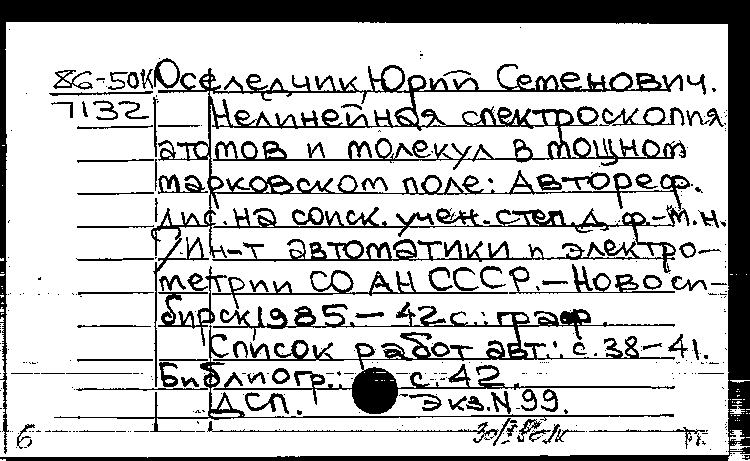 86-50К Оселедчик, Юрий Семенович.
7132 Нелинейная спектроскопия
атомов и молекул в мощном
марковском поле: Автореф.
дис. на соиск. учен. степ. д. ф.-м.н.
/Ин-т автоматики и электро-
метрии СО АН СССР.-Новоси-
бирск, 1985.- 42 с.: граф.
Список работ авт.: с. 38-41.
Библиогр.: с. 42.
ДСП. Экз.N 99.
б